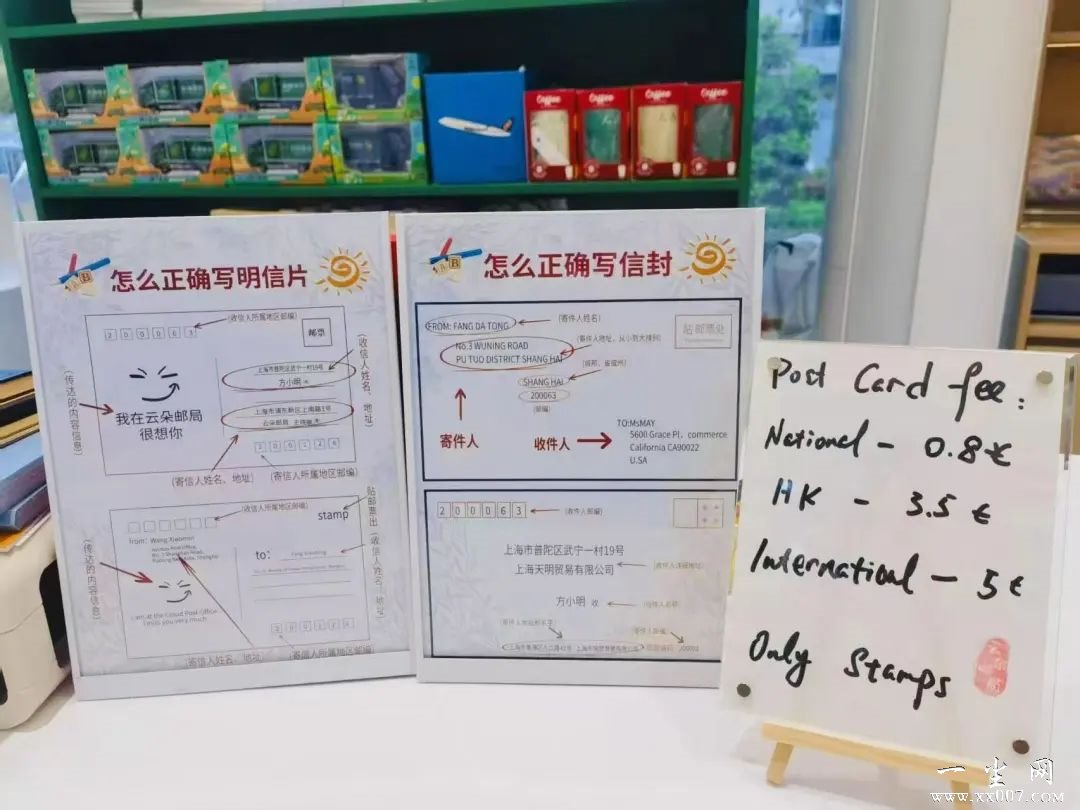 Coffee
Coffee
Coffee
Coffee
怎么正确写明信片
200063
(收信人所属地区邮编)
邮票
(收信人姓名、地址)
上海市普陀区武宁一村19号
方小明 收
(传达的内容信息)
我在云朵邮局
很想你
上海市浦东新区上南路3号
云朵邮局
200126
(寄信人姓名、地址)
(寄信人所属地区邮编)
(收信人所属地区邮编)
贴邮票出
stamp
From: Wang Xiaomin
to:
(收信人姓名、地址)
(传达的内容信息)
I am at the Cloud Post Office
I miss you very much
200126
(寄信人姓名、地址)
(寄信人所属地区邮编)
怎么正确写信封
FROM: FANG DA TONG
(寄件人姓名)
贴邮票处
No.3 WUNING ROAD
PU TUO DISTRICT SHANG HAI
(寄件人地址，从小到大排列)
(城邦、省或州)
SHANG HAI
200063
(邮编)
寄件人
收件人
TO:MsMAY
5600 Grace Pl，commerce
California CA90022
U.SA
200063
(收件人邮编)
上海市普陀区武宁一村19号
上海天明贸易有限公司
(收件人详细地址)
方小明 收
(收件人名称)
Post Card fee:
National - 0.8€
HK - 3.5€
International - 5€
Only Stamps
一尘网
www.xx007.com